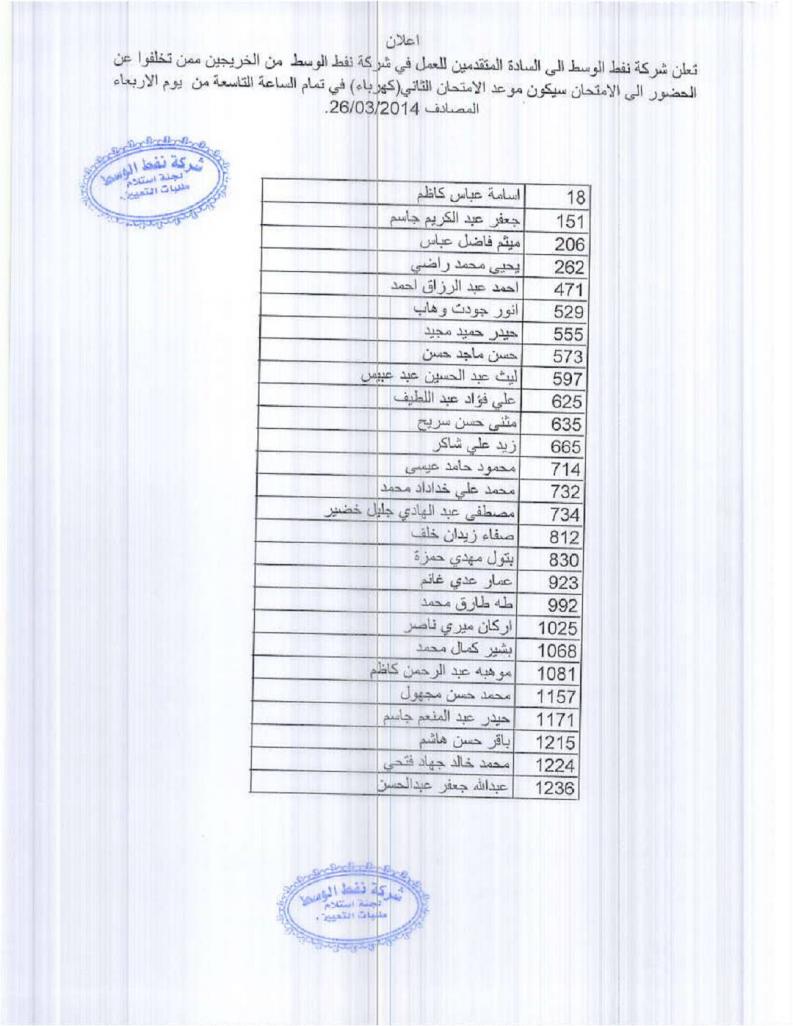 اعلان
تعلن شركة نفط الوسط الى السادة المتقدمين للعمل في شركة نفط الوسط من الخريجين ممن تخلفوا عن
الحضور الى الامتحان سيكون موعد الامتحان الثاني(كهرباء) في تمام الساعة التاسعة من يوم الاربعاء
المصادف 26/03/2014.
شركة نفط الوسط
لجنة استلام
طلبات التعيين.
18 اسامة عباس كاظم
151 جعفر عبد الكريم جاسم
206 ميثم فاضل عباس
262 يحيى محمد راضي
471 احمد عبد الرزاق احمد
529 انور جودت وهاب
555 حيدر حميد مجيد
573 حسن ماجد حسن
597 ليث عبد الحسين عبد عبيس
625 علي فؤاد عبد اللطيف
635 مثنى حسن سريح
665 زيد علي شاكر
714 محمود حامد عيسى
732 محمد علي خداداد محمد
734 مصطفى عبد الهادي جليل خضير
812 صفاء زيدان خلف
830 بتول مهدي حمزة
923 عمار عدي غانم
992 طه طارق محمد
1025 اركان ميري ناصر
1068 بشير كمال محمد
1081 موهبه عبد الرحمن كاظم
1157 محمد حسن مجهول
1171 حيدر عبد المنعم جاسم
1215 باقر حسن هاشم
1224 محمد خالد جهاد فتحي
1236 عبدالله جعفر عبدالحسن
شركة نفط الوسط
لجنة استلام
طلبات التعيين.